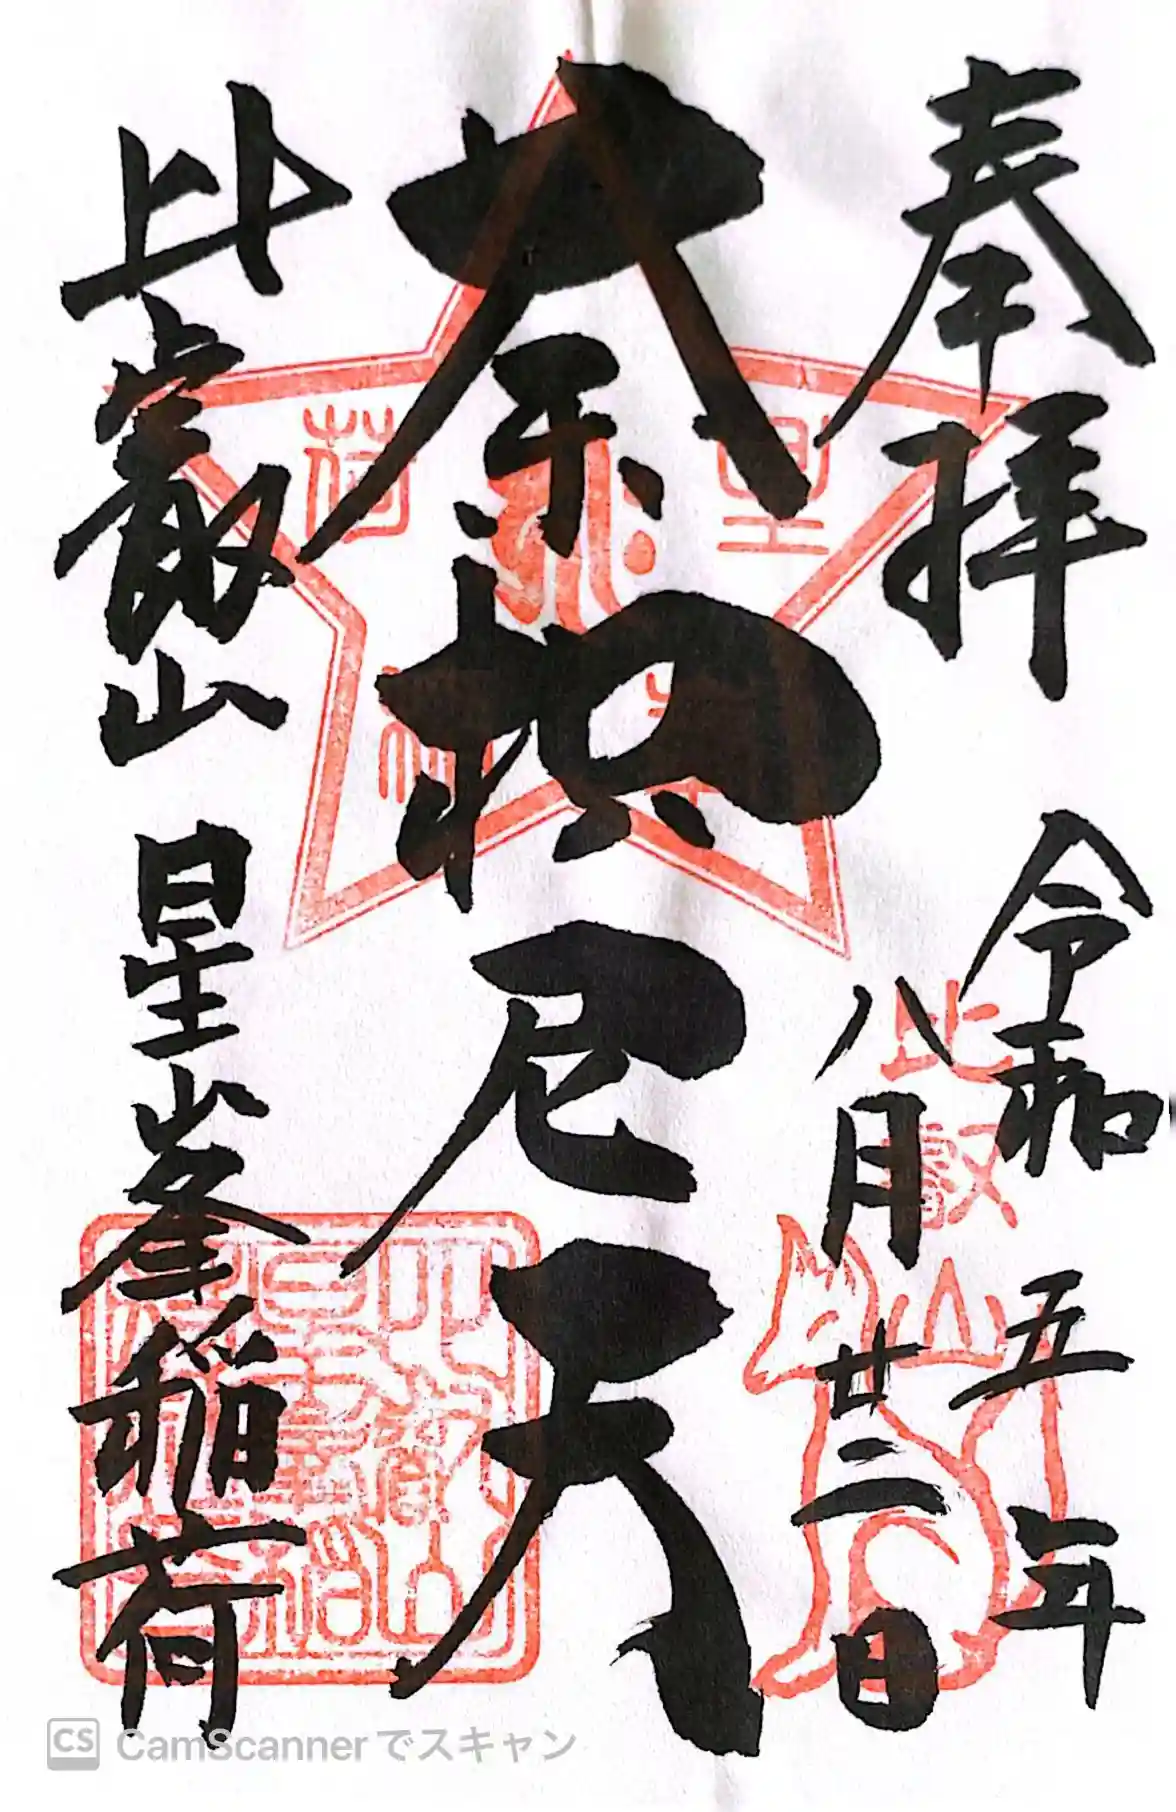 奉拝
令和五年
八月廿三日
荼枳尼天
比叡山 星峯稲荷
比叡山
星
荷
CS CamScannerでスキャン